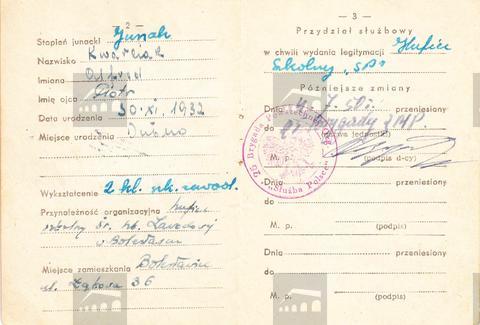 — 2 —
Stopień junacki Junak
Nazwisko Kwarciak
Imiona
Imię ojca Piotr
Data urodzenia 30.XI.1932
Miejsce urodzenia Dubno
Wykształcenie 2 kl. szk. zawod.
Przynależność organizacyjna hufiec
szkolny śr. szk. Zawodowej
w Bolesławcu
Miejsce zamieszkania Bolesławiec
ul. 36
— 3 —
Przydział służbowy
w chwili wydania legitymacji Hufiec
Szkolny "SP"
Późniejsze zmiany
Dnia 4. 7. 50 r. przeniesiony
do 27 Brygady ZMP.
(nazwa jednostki)
M. p. (podpis d-cy)
Dnia przeniesiony
do
M. p. (podpis)
Dnia przeniesiony
do
M. p. (podpis)
27 Brygada "Służba Polsce"